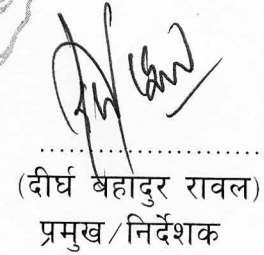 ........................
(दीर्घ बहादुर रावल)
प्रमुख/निर्देशक